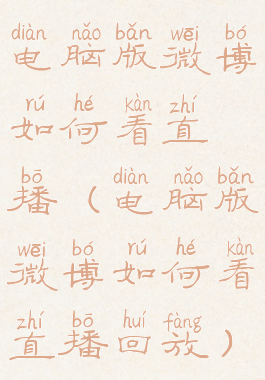 diàn nǎo bǎn wēi bó
电脑版微博
rú hé kàn zhí
如何看直
bō diàn nǎo bǎn
播(电脑版
wēi bó rú hé kàn
微博如何看
zhí bō huí fàng
直播回放)